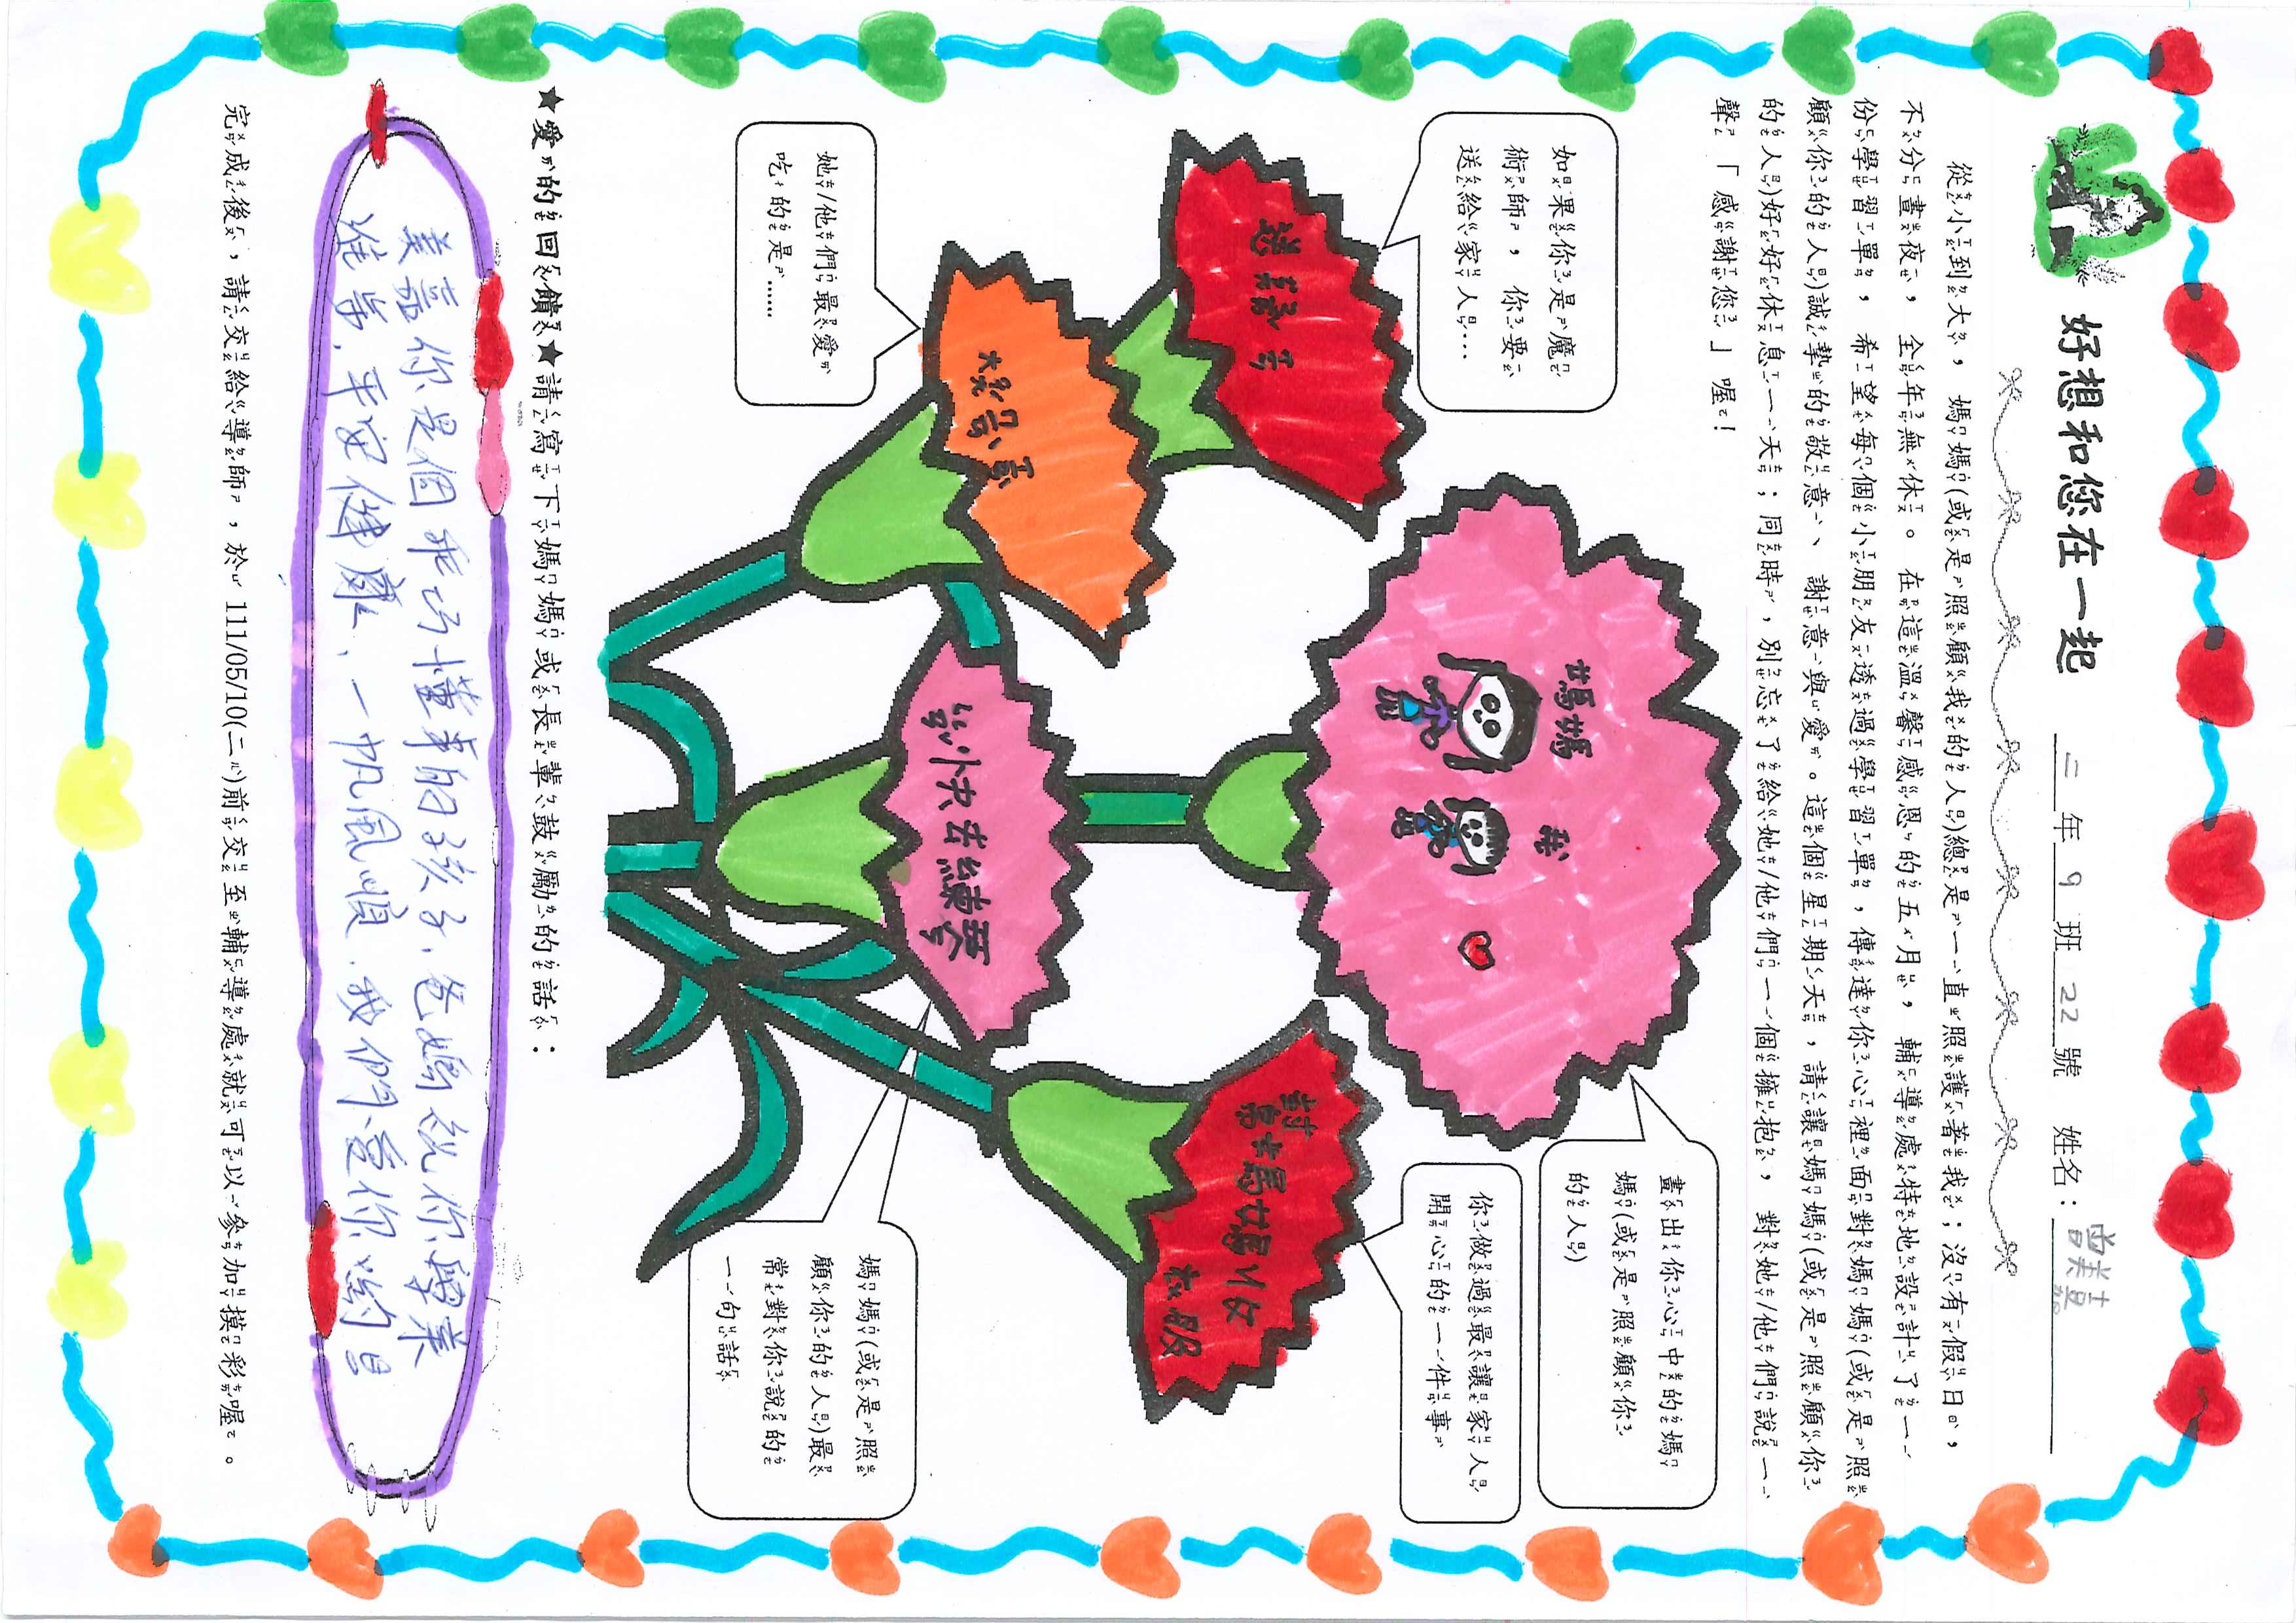 好想和您在一起
二年9班22號 姓名：曾美嘉
從小到大，媽媽(或是照顧我的人)總是一直照護著我；沒有假日，
不分晝夜，全年無休。在這溫馨感恩的五月，輔導處特地設計了一
份學習單，希望每個小朋友透過學習單，傳達你心裡面對媽媽(或是照
顧你的人)誠摯的敬意、謝意與愛。這個星期天，請讓媽媽(或是照顧你
的人)好好休息一天；同時，別忘了給她/他們一個擁抱，對她/他們說一
聲「感謝您」喔！
如果你是魔
術師，你要
送給家人…
畫出你心中的媽
媽(或是照顧你
的人)
媽媽
我
你做過最讓家人
開心的一件事
對
媽媽
衣服
她/他們最愛
吃的是……
媽媽(或是照
顧你的人)最
常對你說的
一句話
快去練琴
★愛的回饋★請寫下媽媽或長輩鼓勵的話：
美嘉你是個乖巧懂事的孩子，爸媽祝你學業
進步，平安健康、一帆風順．我們愛你喲！
完成後，請交給導師，於 111/05/10(二)前交至輔導處就可以參加摸彩喔。